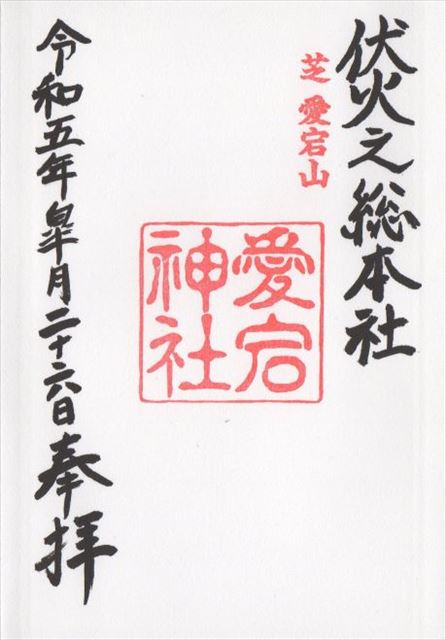 伏火之総本社
芝 愛宕山
愛宕
神社
令和五年皐月二十六日奉拝